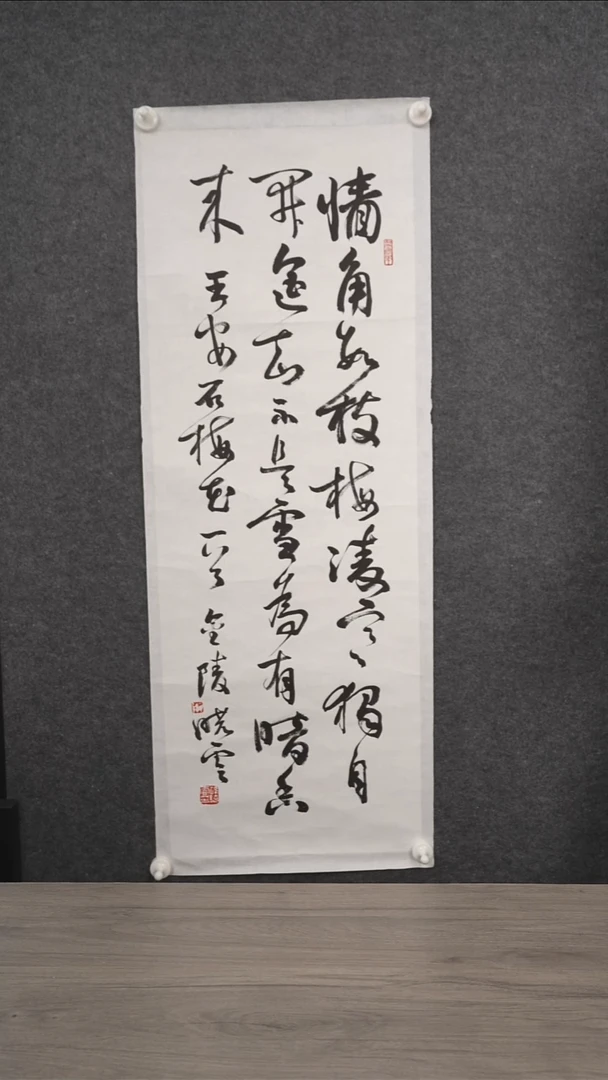 墙角数枝梅凌寒独自
開遥知不是雪為有暗香
来 王安石梅花一首 金陵晓雲